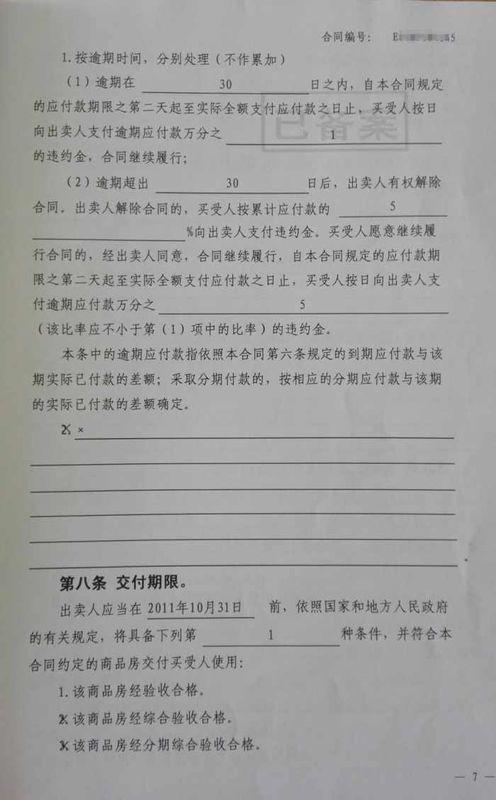 合同编号：
1.按逾期时间，分别处理（不作累加）
（1）逾期在 30 日之内，自本合同规定
的应付款期限之第二天起至实际全额支付应付款之日止，买受人按日
向出卖人支付逾期应付款万分之 1
的违约金，合同继续履行；
已备案
（2）逾期超出 30 日后，出卖人有权解除
合同。出卖人解除合同的，买受人按累计应付款的 5
%向出卖人支付违约金。买受人愿意继续履
行合同的，经出卖人同意，合同继续履行，自本合同规定的应付款期
限之第二天起至实际全额支付应付款之日止，买受人按日向出卖人支
付逾期应付款万分之 5
（该比率应不小于第（1）项中的比率）的违约金。
本条中的逾期应付款指依照本合同第六条规定的到期应付款与该
期实际已付款的差额；采取分期付款的，按相应的分期应付款与该期
的实际已付款的差额确定。
2. ×
第八条 交付期限。
出卖人应当在 2011年10月31日 前，依照国家和地方人民政府
的有关规定，将具备下列第 1 种条件，并符合本
合同约定的商品房交付买受人使用：
1.该商品房经验收合格。
2.该商品房经综合验收合格。
3.该商品房经分期综合验收合格。
— 7 —